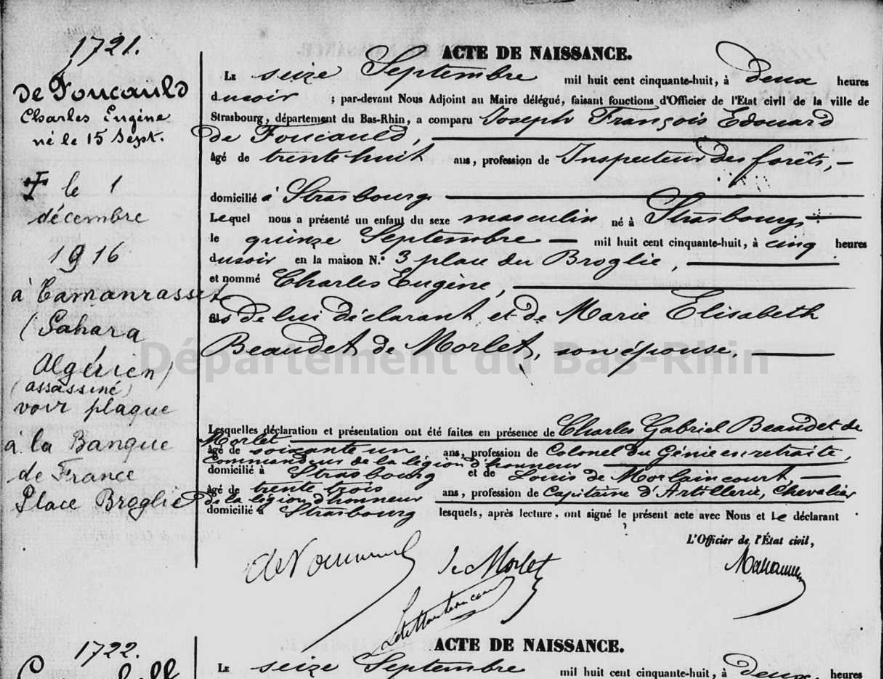 1721.
de Foucauld
Charles Eugène
né le 15 Sept.
✝ le 1
décembre
1916
à Tamanrasset
(Sahara
Algérien)
(assassiné)
voir plaque
à la Banque
de France
Place Broglie
ACTE DE NAISSANCE.
Le seize Septembre mil huit cent cinquante-huit, à deux heures
du soir ; par-devant Nous Adjoint au Maire délégué, faisant fonctions d'Officier de l'Etat civil de la ville de
Strasbourg, département du Bas-Rhin, a comparu Joseph François Edouard
de Foucauld,
âgé de trente huit ans, profession de Inspecteur des forêts,
domicilié à Strasbourg
Lequel nous a présenté un enfant du sexe masculin né à Strasbourg,
le quinze Septembre mil huit cent cinquante-huit, à cinq heures
du soir en la maison N.° 3 place du Broglie,
et nommé Charles Eugène,
fils de lui déclarant et de Marie Elisabeth
Beaudet de Morlet, son épouse,
Département du Bas-Rhin
Lesquelles déclaration et présentation ont été faites en présence de Charles Gabriel Beaudet de
Morlet
âgé de soixante un ans, profession de Colonel du Génie en retraite,
Commandeur de la légion d'honneur
domicilié à Strasbourg et de Louis de
âgé de trente trois ans, profession de Capitaine d'Artillerie, Chevalier
de la légion d'honneur
domicilié à Strasbourg lesquels, après lecture, ont signé le présent acte avec Nous et Le déclarant
L'Officier de l'État civil,
de Morlet
1722.
ACTE DE NAISSANCE.
Le seize Septembre mil huit cent cinquante-huit, à deux heures